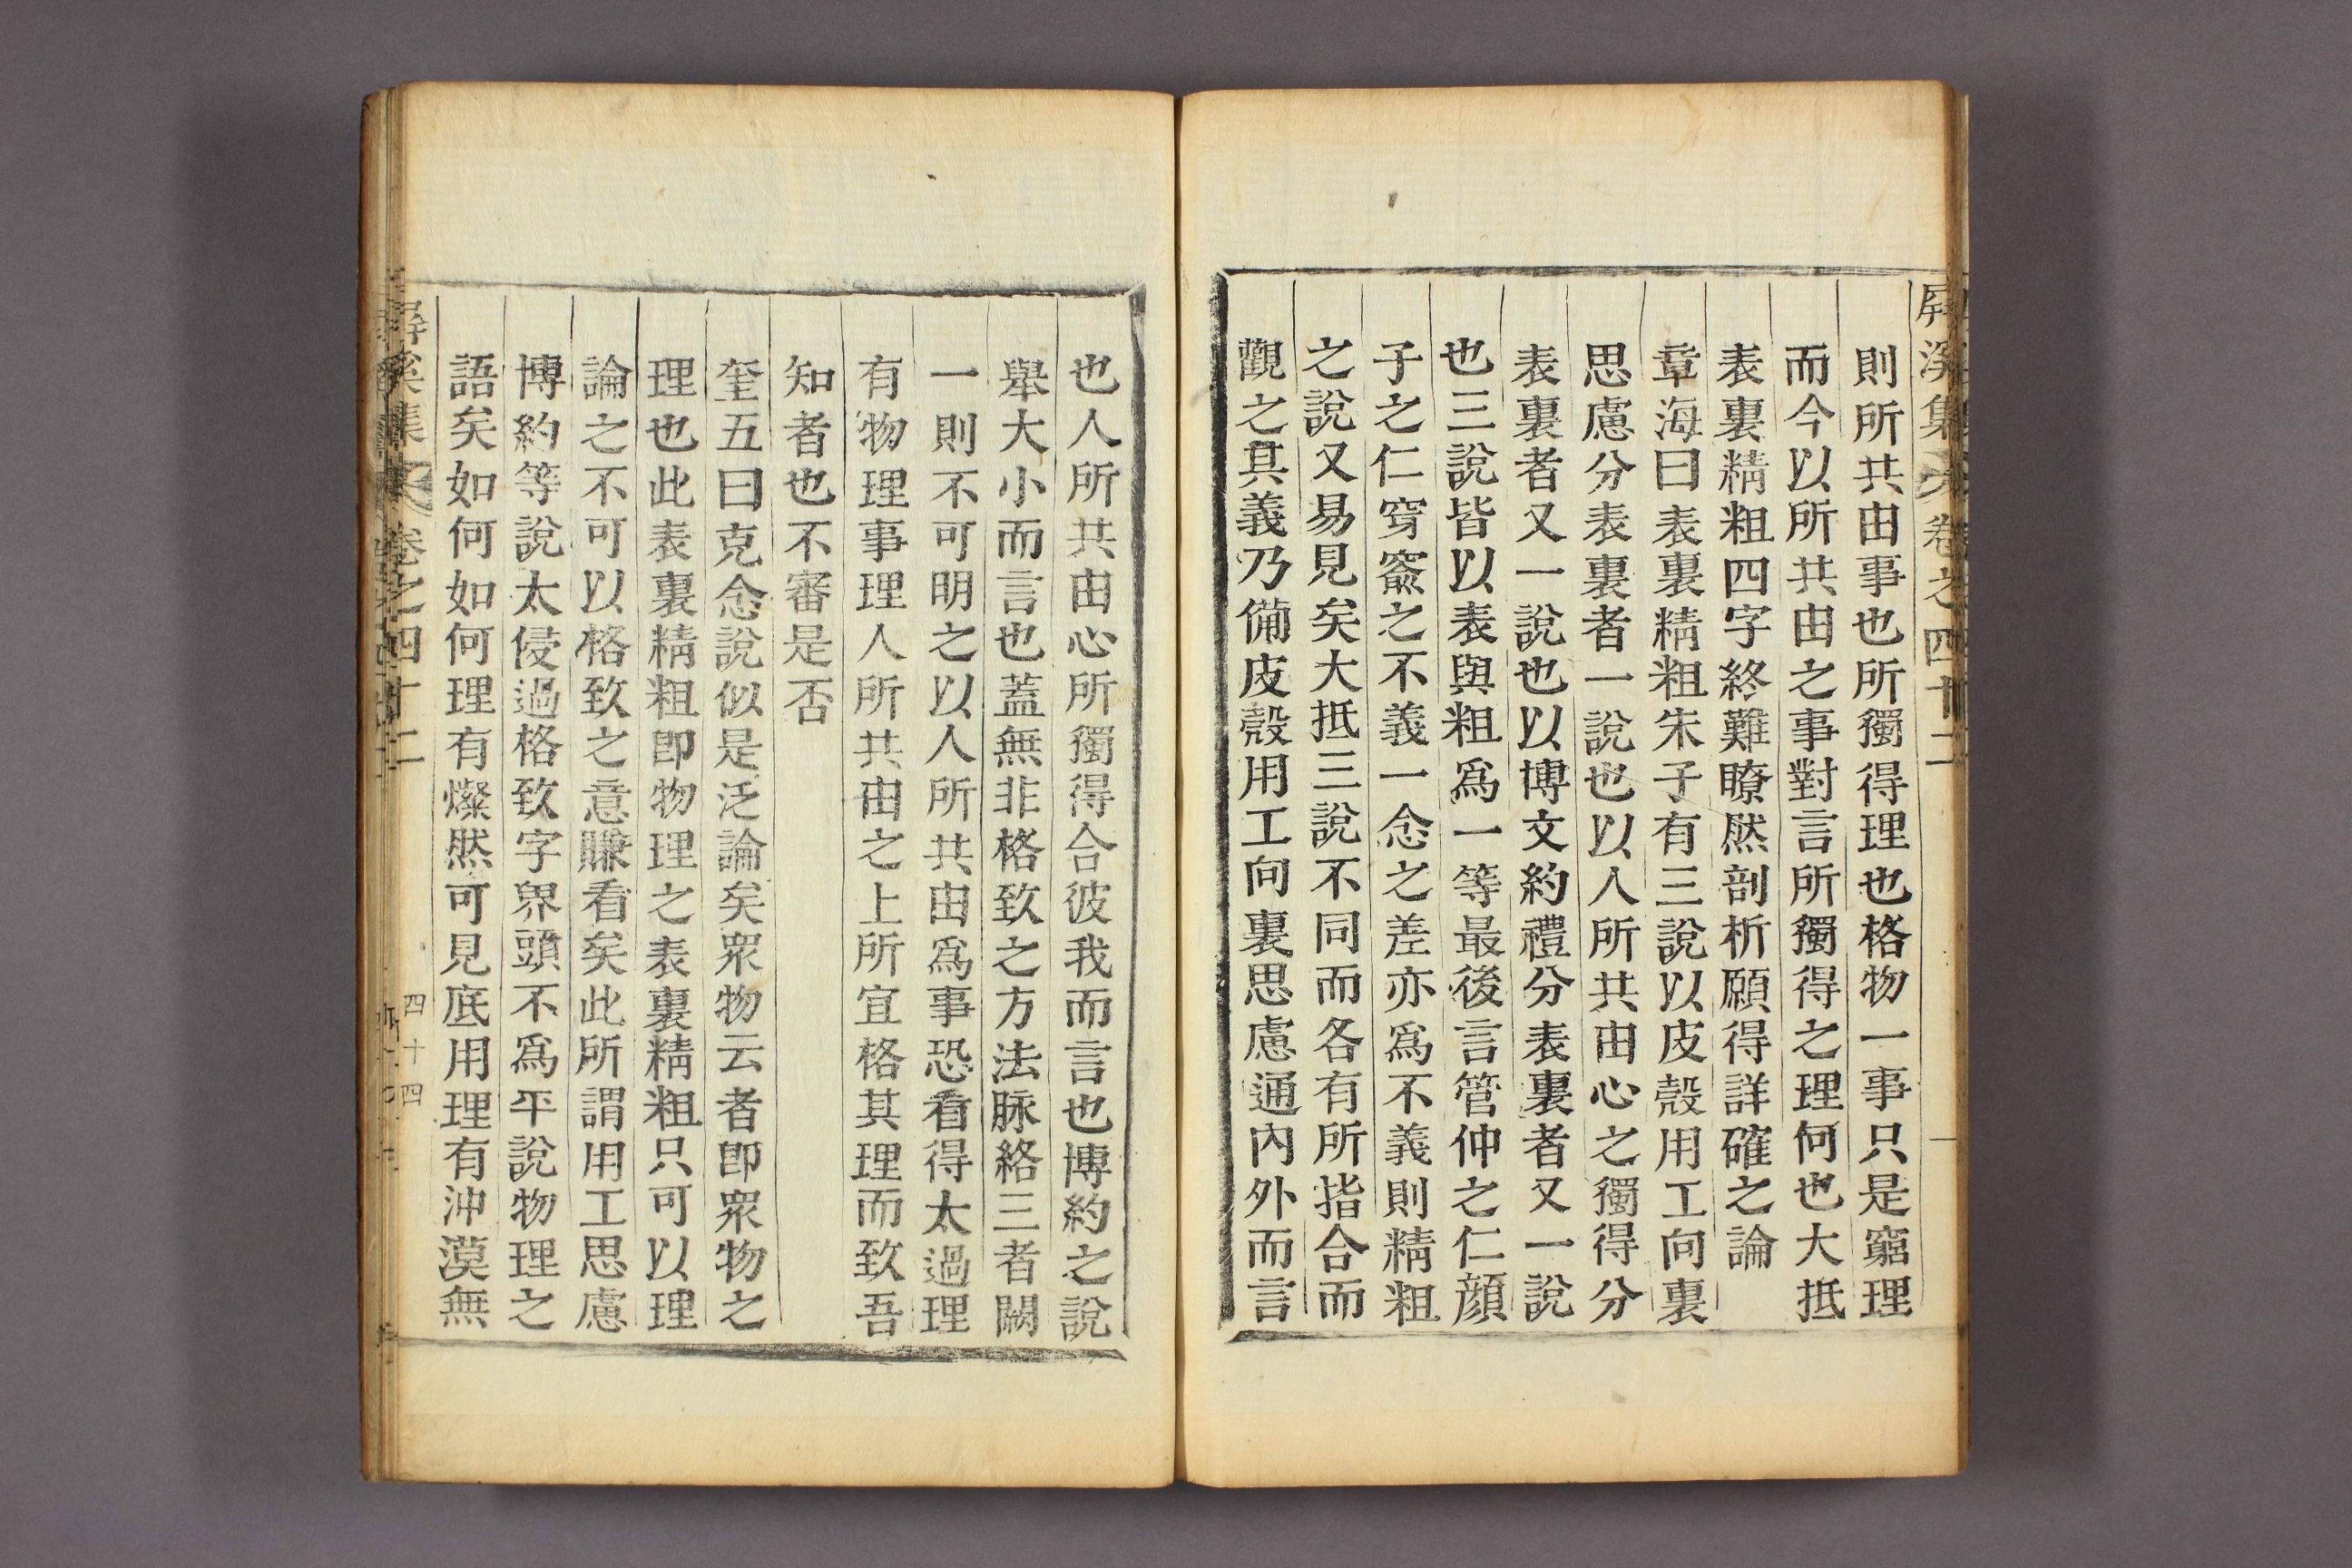 屛溪集
卷之四十二
則所共由事也所獨得理也格物一事只是窮理
而今以所共由之事對言所獨得之理何也大抵
表裏精粗四字終難瞭然剖析願得詳確之論
章海曰表裏精粗朱子有三說以皮殼用工向裏
思慮分表裏者一說也以人所共由心之獨得分
表裏者又一說也以博文約禮分表裏者又一說
也三說皆以表與粗爲一等最後言管仲之仁顔
子之仁穿窬之不義一念之差亦爲不義則精粗
之說又易見矣大抵三說不同而各有所指合而
觀之其義乃備皮殼用工向裏思慮通內外而言
也人所共由心所獨得合彼我而言也博約之說
擧大小而言也蓋無非格致之方法脉絡三者闕
一則不可明之以人所共由爲事恐看得太過理
有物理事理人所共由之上所宜格其理而致吾
知者也不審是否
奎五曰克念說似是泛論矣衆物云者卽衆物之
理也此表裏精粗卽物理之表裏精粗只可以理
論之不可以格致之意賺看矣此所謂用工思慮
博約等說太侵過格致字界頭不爲平說物理之
語矣如何如何理有燦然可見底用理有沖漠無
屛溪集
卷之四十二
四十四